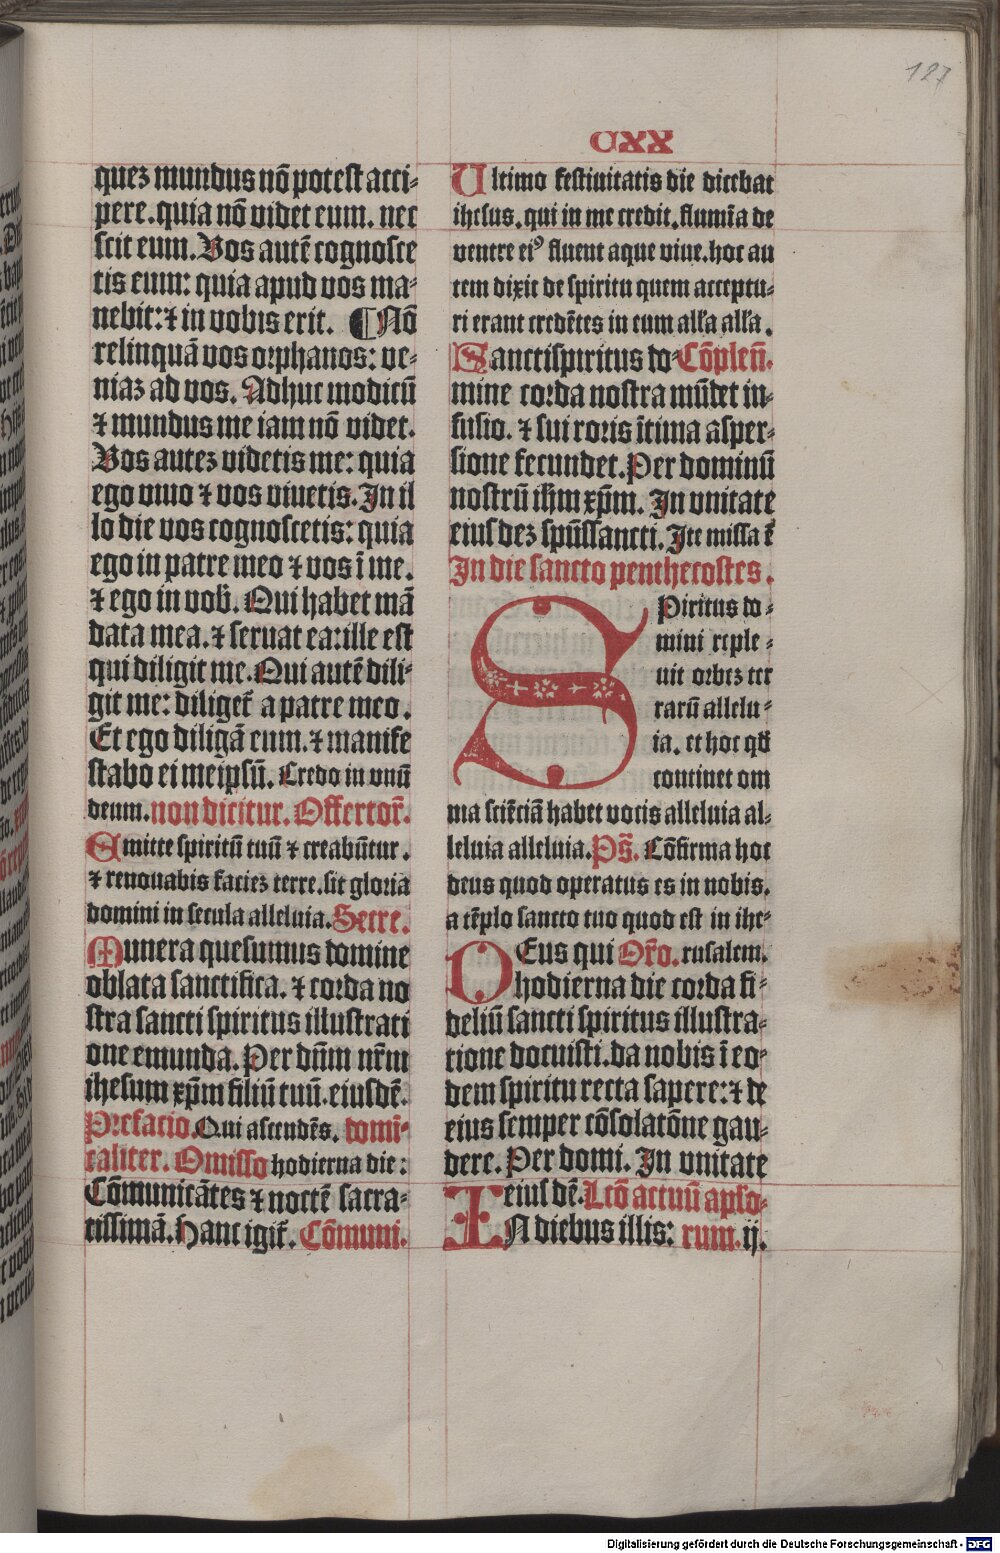 127
CXX
quez mundus nō potest acci-
pere. quia nō videt eum. nec
scit eum. Vos autē cognosce
tis eum: quia apud vos ma-
nebit: ⁊ in vobis erit. ¶ Nō
relinquā vos orphanos: ve-
niaz ad vos. Adhuc modicū
⁊ mundus me iam nō videt.
Vos autez videtis me: quia
ego vivo ⁊ vos vivetis. In il
lo die vos cognoscetis: quia
ego in patre meo ⁊ vos ī me.
⁊ ego in vob̄. Qui habet mā
data mea. ⁊ servat ea: ille est
qui diligit me. Qui autē dili-
git me: diliget̄ a patre meo.
Et ego diligā eum. ⁊ manife
stabo ei meipsū. Credo in unū
deum. non dicitur. Offertor̄.
Emitte spiritū tuū ⁊ creabūtur.
⁊ renovabis faciez terre. sit gloria
domini in secula alleluia. Secre.
Munera quesumus domine
oblata sanctifica. ⁊ corda no
stra sancti spiritus illustrati
one emunda. Per dn̄m nr̄m
ihesum xp̄m filiū tuū. eiusdē.
Prefatio. Qui ascendēs. domi-
caliter. Omisso hodierna die:
Cōmunicātes ⁊ noctē sacra-
tissimā. Hanc igit̄. Cōmuni.
Ultimo festivitatis die dicebat
ihesus. qui in me credit. flumīa de
ventre eiꝰ fluent aque vive. hoc au
tem dixit de spiritu quem acceptu-
ri erant credētes in eum all'a all'a.
Sanctispiritus do- Cōplen̄.
mine corda nostra mūdet in-
fusio. ⁊ sui roris ītima asper-
sione fecundet. Per dominū
nostrū ihm xp̄m. In unitate
eiusdez spūssancti. Ite missa ē
In die sancto penthecostes.
Spiritus do-
mini reple-
vit orbez ter
rarū allelu-
ia. et hoc qđ
continet om
nia sciēciā habet vocis alleluia al-
leluia alleluia. Ps̄. Cōfirma hoc
deus quod operatus es in nobis.
a tēplo sancto tuo quod est in ihe-
DEus qui Or̄o. rusalem.
hodierna die corda fi-
deliū sancti spiritus illustra-
tione docuisti. da nobis ī eo-
dem spiritu recta sapere: ⁊ de
eius semper cōsolatōne gau-
dere. Per domi. In unitate
eius dē. Lcō actuū apl'o-
IN diebus illis: rum. ij.
Digitalisierung gefördert durch die Deutsche Forschungsgemeinschaft - DFG